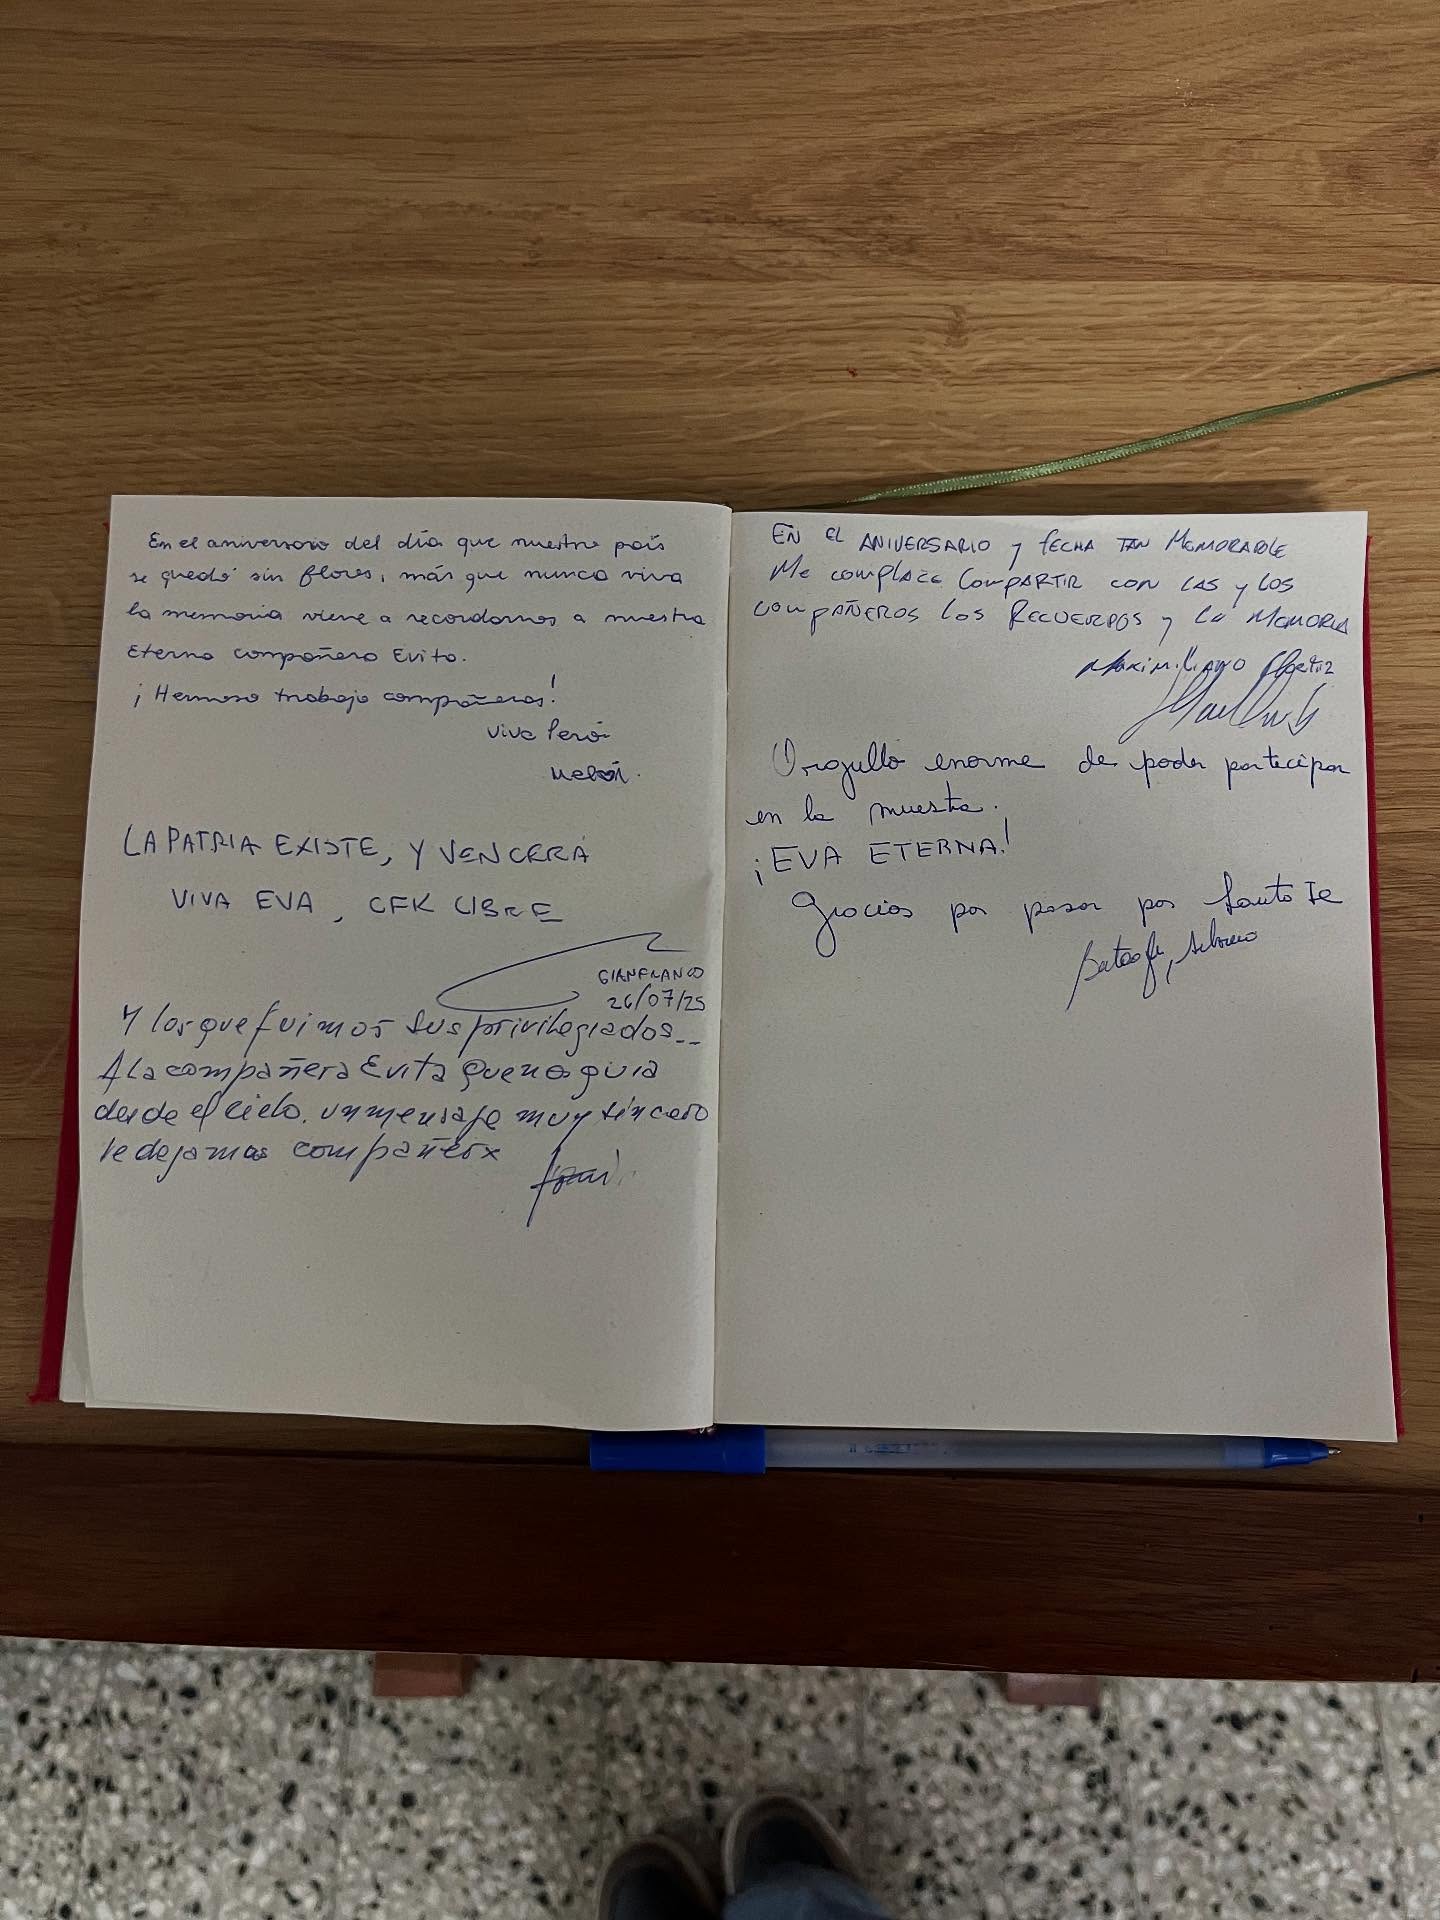 En el aniversario del día que nuestro país
se quedó sin flores, más que nunca viva
la memoria viene a recordarnos a nuestra
eterna compañera Evita.
¡Hermoso trabajo compañeras!
Viva Perón
LA PATRIA EXISTE, Y VENCERÁ
VIVA EVA, CFK LIBRE
GIANFRANCO
26/07/25
Y los que fuimos sus privilegiados...
A la compañera Evita que nos guia
desde el cielo. un mensaje muy sincero
te dejamos compañerx
EN EL ANIVERSARIO y fECHA TAN MEMORABLE
Me complace COMPARTIR CON LAS y LOS
COMPAÑEROS LOS RECUERDOS y LA MEMORIA
MAXIMILIANO
Orgullo enorme de poder participar
en la muestra.
¡EVA ETERNA!
Gracias por pasar por Santo Te